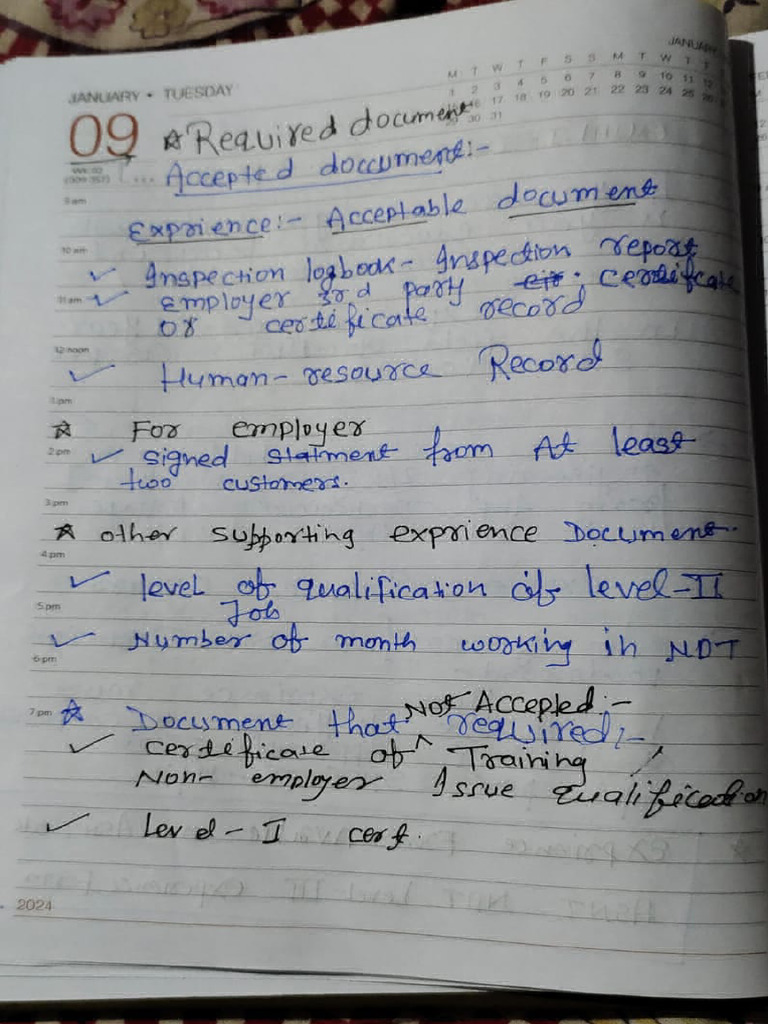 JANUARY
M T W T F S S M T W T
1 2 3 4 5 6 7 8 9 10 11 12
16 17 18 19 20 21 22 23 24 25 26
30 31
JANUARY • TUESDAY
09 ☆ Required document
... Accepted doccument:-
8 am
Exprience:- Acceptable document
10 am
✓ Inspection logbook- Inspection report
11 am ✓ Employer 3rd party ; certificate
or certificate record
12 noon
✓ Human-resource Record
1 pm
☆ For employer
2 pm ✓ signed statment from At least
two customers.
3 pm
☆ other supporting exprience Document.
4 pm
✓ level of qualification of level-II
5 pm Job
✓ Number of month working in NDT
6 pm
Not Accepted:-
7 pm ☆ Document that required:-
✓ certificate of ^ Training /
Non- employer Issue qualification
✓ Level-II cert.
2024